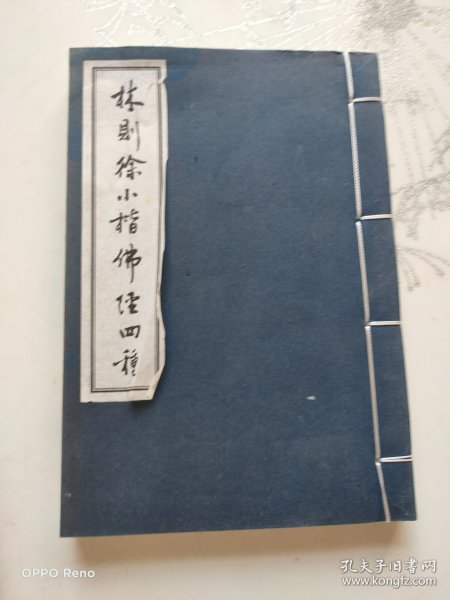 林则徐小楷佛经四種
OPPO Reno
孔夫子旧书网
www.kongfz.com